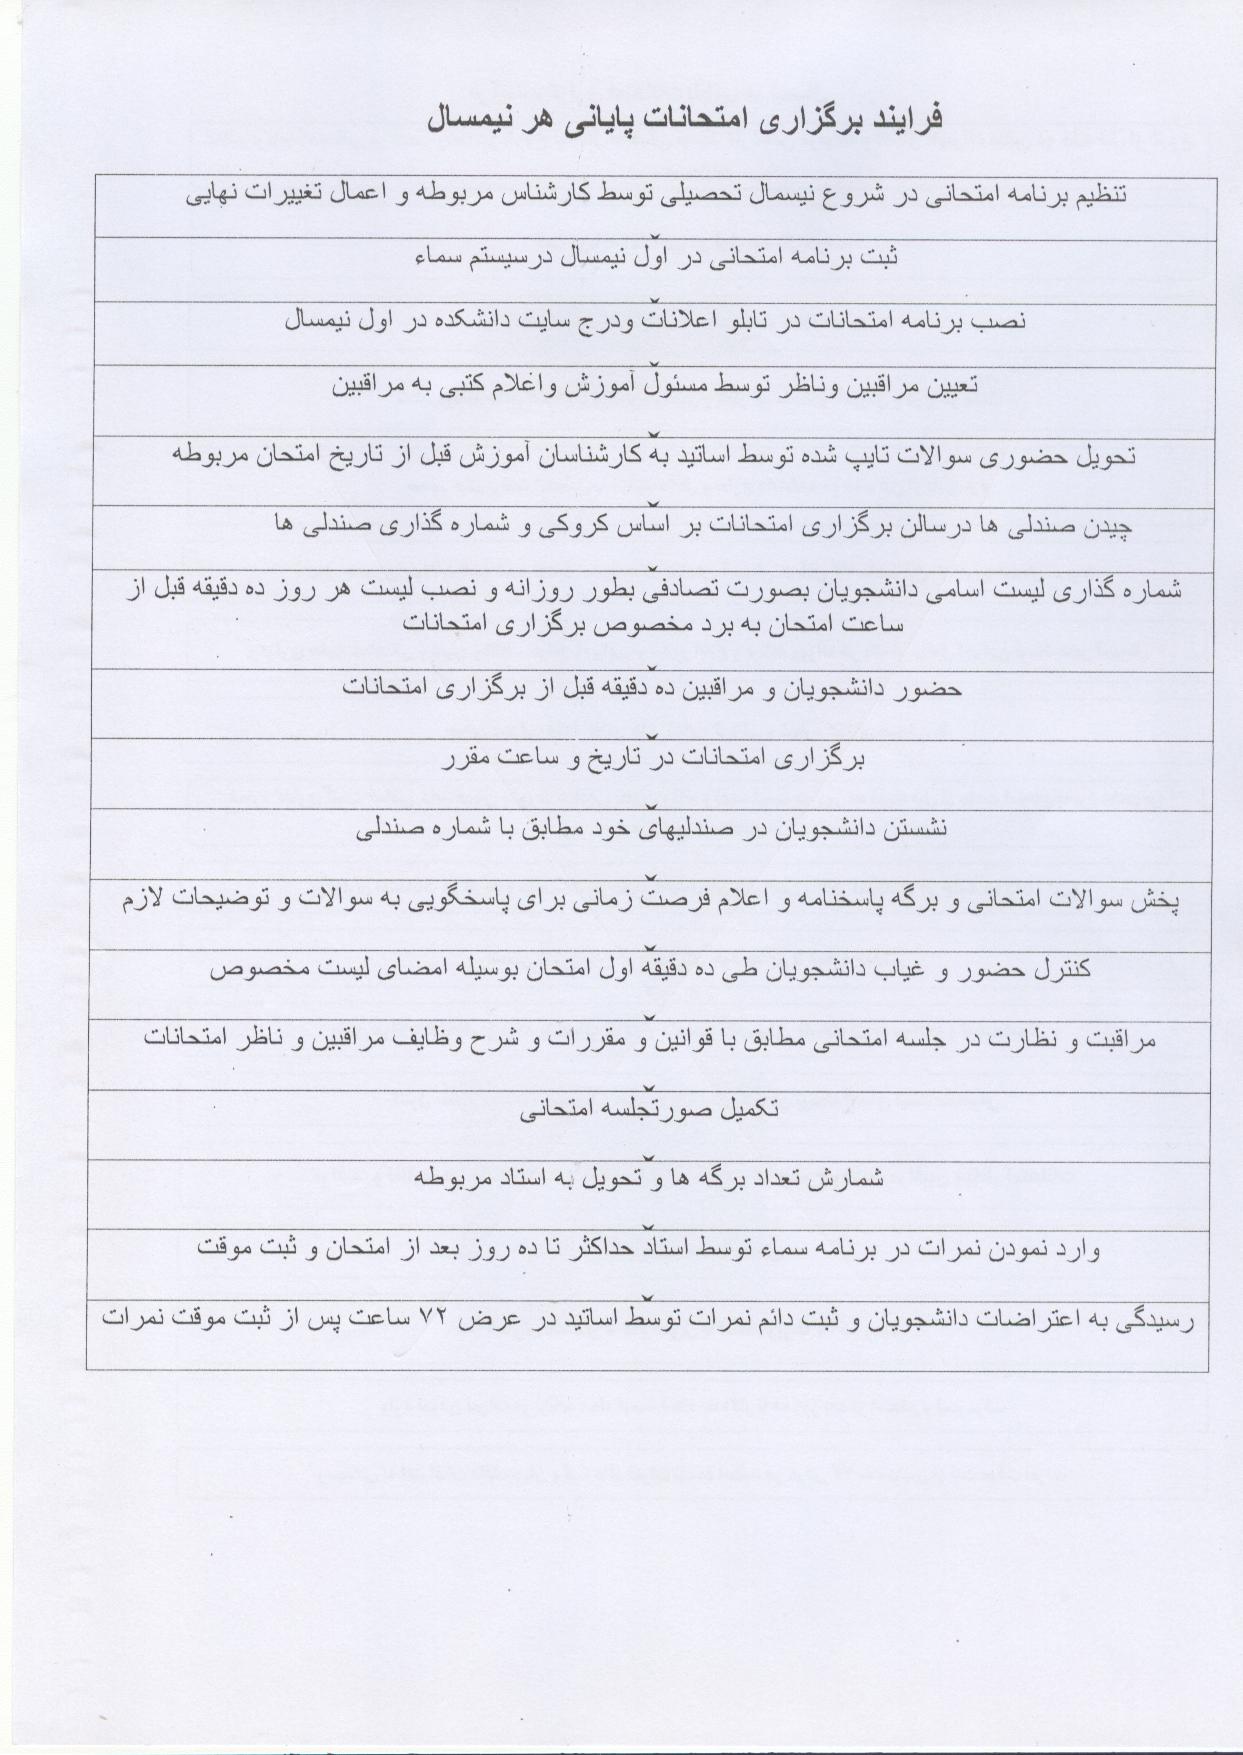 فرایند برگزاری امتحانات پایانی هر نیمسال
تنظیم برنامه امتحانی در شروع نیسمال تحصیلی توسط کارشناس مربوطه و اعمال تغییرات نهایی
ثبت برنامه امتحانی در اول نیمسال درسیستم سماء
نصب برنامه امتحانات در تابلو اعلانات ودرج سایت دانشکده در اول نیمسال
تعیین مراقبین وناظر توسط مسئول آموزش واعلام کتبی به مراقبین
تحویل حضوری سوالات تایپ شده توسط اساتید به کارشناسان آموزش قبل از تاریخ امتحان مربوطه
چیدن صندلی ها درسالن برگزاری امتحانات بر اساس کروکی و شماره گذاری صندلی ها
شماره گذاری لیست اسامی دانشجویان بصورت تصادفی بطور روزانه و نصب لیست هر روز ده دقیقه قبل از
ساعت امتحان به برد مخصوص برگزاری امتحانات
حضور دانشجویان و مراقبین ده دقیقه قبل از برگزاری امتحانات
برگزاری امتحانات در تاریخ و ساعت مقرر
نشستن دانشجویان در صندلیهای خود مطابق با شماره صندلی
پخش سوالات امتحانی و برگه پاسخنامه و اعلام فرصت زمانی برای پاسخگویی به سوالات و توضیحات لازم
کنترل حضور و غیاب دانشجویان طی ده دقیقه اول امتحان بوسیله امضای لیست مخصوص
مراقبت و نظارت در جلسه امتحانی مطابق با قوانین و مقررات و شرح وظایف مراقبین و ناظر امتحانات
تکمیل صورتجلسه امتحانی
شمارش تعداد برگه ها و تحویل به استاد مربوطه
وارد نمودن نمرات در برنامه سماء توسط استاد حداکثر تا ده روز بعد از امتحان و ثبت موقت
رسیدگی به اعتراضات دانشجویان و ثبت دائم نمرات توسط اساتید در عرض ۷۲ ساعت پس از ثبت موقت نمرات